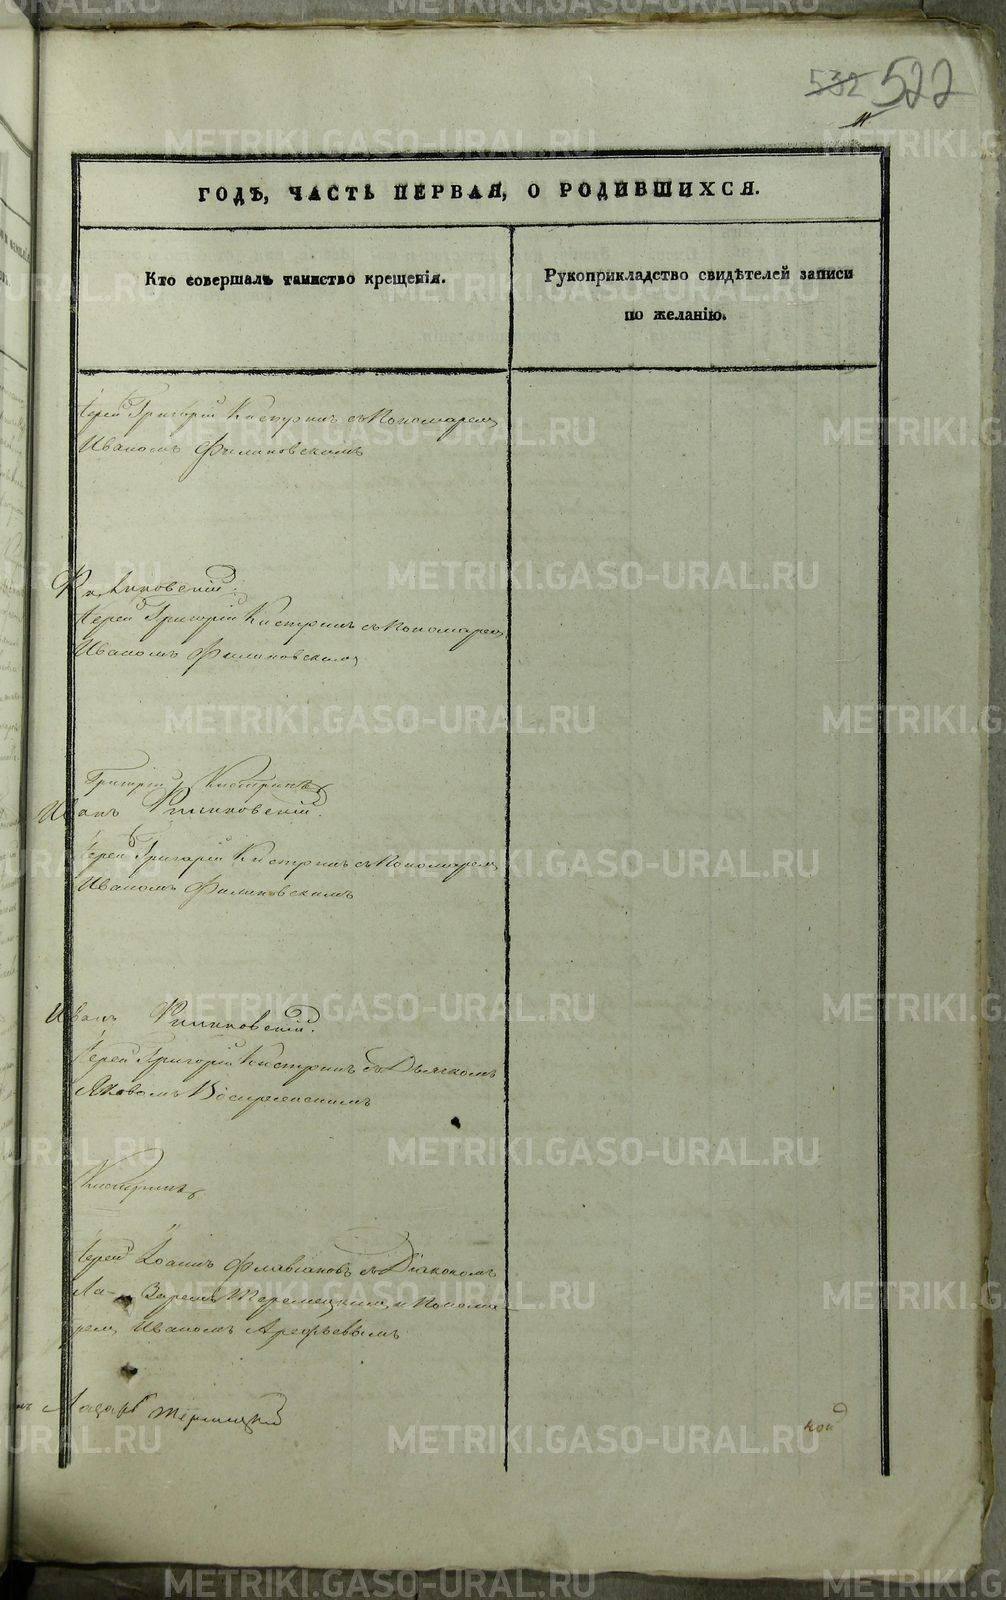 532 522
ГОДЪ, ЧАСТЬ ПЕРВАЯ, О РОДИВШИХСЯ.
Кто совершалъ таинство крещенія.
Рукоприкладство свидѣтелей записи
по желанію.
Іерей Григорій Кистринъ съ Пономаремъ
Иваномъ Филиковскимъ
Филиковскій.
Іерей Григорій Кистринъ съ Пономаремъ
Иваномъ Филиковскимъ
Григорій Кистринъ
Иванъ Филиковскій.
Іерей Григорій Кистринъ съ Пономаремъ
Иваномъ Филиковскимъ
Иванъ Филиковскій.
Іерей Григорій Кистринъ съ Дьячкомъ
Яковомъ
Кистринъ
Іерей Іоаннъ Флавіановъ съ Діакономъ
Ла- заремъ и Понома-
ремъ Иваномъ Арефьевымъ
Лазарь
METRIKI.GASO-URAL.RU